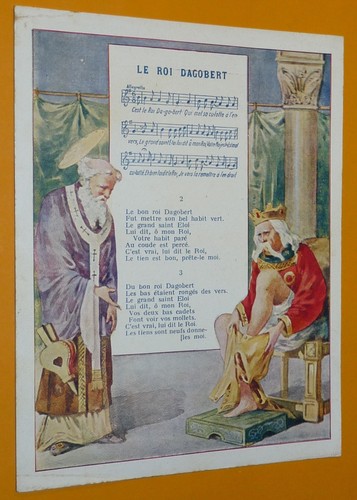 LE ROI DAGOBERT
Allegretto
C'est le Roi Da-go-bert Qui met sa culotte à l'en-
vers, Le grand saint Eloi lui dit ô mon Roi, Votre Majesté
culotté. Eh bien lui dit le Roi, Je vais la remettre à l'endroit
2
Le bon roi Dagobert
Fut mettre son bel habit vert.
Le grand saint Eloi
Lui dit, ô mon Roi,
Votre habit paré
Au coude est percé.
C'est vrai, lui dit le Roi,
Le tien est bon, prête-le moi.
3
Du bon roi Dagobert
Les bas étaient rongés des vers.
Le grand saint Eloi
Lui dit, ô mon Roi,
Vos deux bas cadets
Font voir vos mollets.
C'est vrai, lui dit le Roi,
Les tiens sont neufs donne-
[les moi.